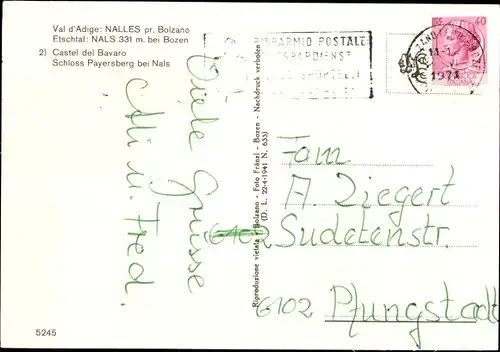 Val d'Adige: NALLES pr. Bolzano
Etschtal: NALS 331 m. bei Bozen
2) Castel del Bavaro
Schloss Payersberg bei Nals
RISPARMIO POSTALE
SPARDIENST
40
1971
Viele Grüsse
Alli u. Fred.
Riproduzione vietata - Bolzano - Foto Fränzl - Bozen - Nachdruck verboten
(D. L. 22-4-1941 N. 633)
Fam.
A. Ziegert
Sudetenstr.
6102 Pfungstadt
5245